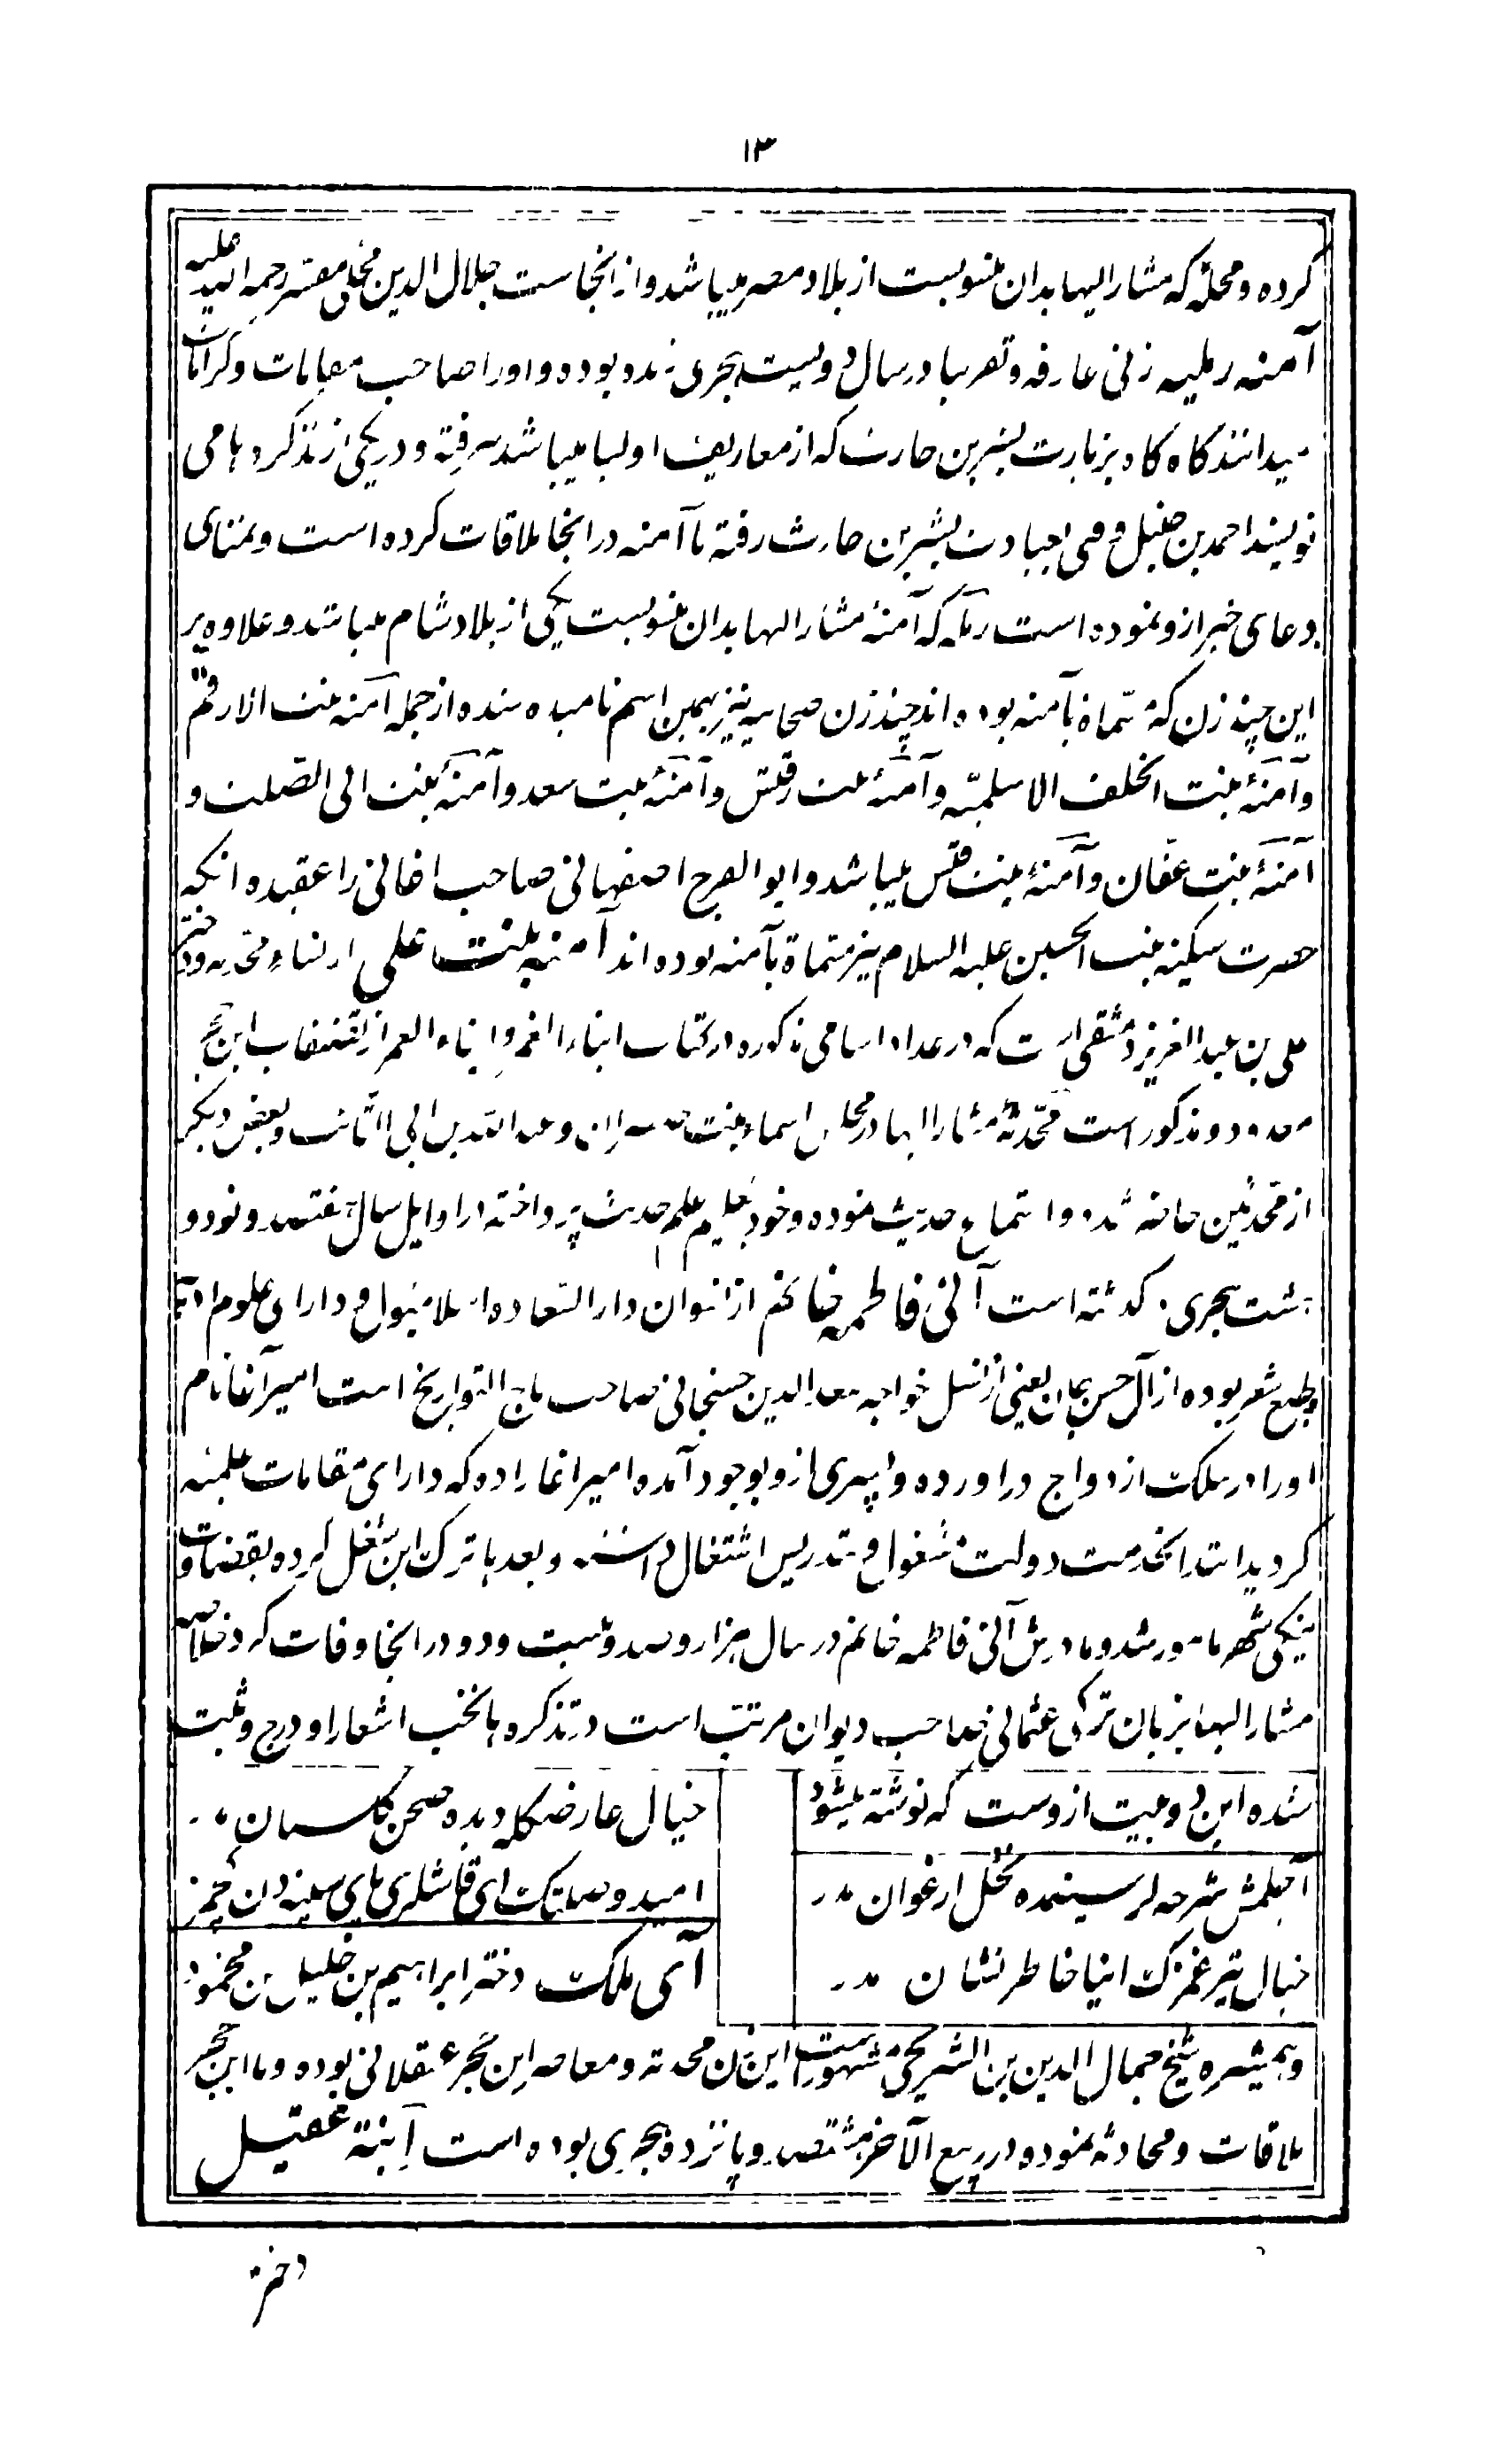 ۱۳
کرده و محله که مشار الیها بدان منسوبست از بلاد مصر میباشد و از انجاست جلال الدین محلی مفسر رحمة الله علیه
آمنه رملیه زنی عارفه و تقریبا در سال دویست هجری زنده بوده و او را صاحب مقامات و کرامات
میدانند کاه کاه بزیارت بشر بن حارث که از معاریف اولیا میباشد میرفته و در یکی از تذکره ها می
نویسند احمد بن حنبل وقتی بعیادت بشر بن حارث رفته با آمنه در انجا ملاقات کرده است و تمنای
دعای خیر ازو نموده است رمله که آمنهٔ مشار الیها بدان منسوبست یکی از بلاد شام میباشد و علاوه بر
این چند زن که مسماة بآمنه بوده اند چند زن صحابیه نیز بهمین اسم نامیده شده از جمله آمنه بنت الارقم
و آمنهٔ بنت الخلف الاسلمیه و آمنهٔ بنت رقیش و آمنهٔ بنت سعد و آمنهٔ بنت ابی الصلت و
آمنهٔ بنت عفان و آمنهٔ بنت قیس میباشد و ابو الفرج اصفهانی صاحب اغانی را عقیده انکه
حضرت سکینه بنت الحسین علیه السلام نیز مسماة بآمنه بوده اند آمنه بنت علی از نساء محدثه و دختر
علی بن عبد العزیز دمشقی است که در عداد اسامی مذکوره در کتاب انباء الغمر و ابناء العمر از تصنیفات ابن حجر
معدود و مذکور است محدثهٔ مشار الیها در مجلس اسماء بنت و عبد الله بن ابی التائب و بعض دیکر
از محدثین حاضر شده و استماع حدیث نموده و خود بتعلیم علم حدیث پرداخته در اوایل سال هفتصد و نود و
هشت هجری در کذشته است آنی فاطمه خانم از نسوان دار السعاده اسلامبول و دارای علوم ادبیه
و طبع شعر بوده از آل حسن جان یعنی از نسل خواجه سعد الدین حسنجانی صاحب تاج التواریخ است امیر آغا نام
او را در سلک ازدواج در اورده و پسری ازو بوجود آمده امیر آغا زاده که دارای مقامات علمیه
کردید ابتدا بخدمت دولت مشغول و بتدریس اشتغال داشته و بعد با ترک این شغل کرده بقضاوت
ینکی شهر مامور شد و مادرش آنی فاطمه خانم در سال هزار و صد و بیست و دو در انجا وفات کرد خلاصه
مشار الیها بزبان ترکی عثمانی صاحب دیوان مرتب است در تذکره ها نخب اشعار او درج و ثبت
شده این دو بیت ازوست که نوشته میشود
خیال عارضکله دیده صحن کلستان
آچلمش شرحه لر سینمده نخل ارغوان در
امید وصلتک ای قاشلری یای سینه دن چقمز
خیال تیر غمزک انیا خاطر نشان در
آی ملک دختر ابراهیم بن خلیل بن محمود
و همشیره شیخ جمال الدین بن الشریحی مشهور است این زن محدثه و معاصر ابن حجر عسقلانی بوده و با ابن حجر
ملاقات و محادثه نموده در ربیع الآخر هشتصد و پانزده هجری بوده است آبنة عقیل
دختر